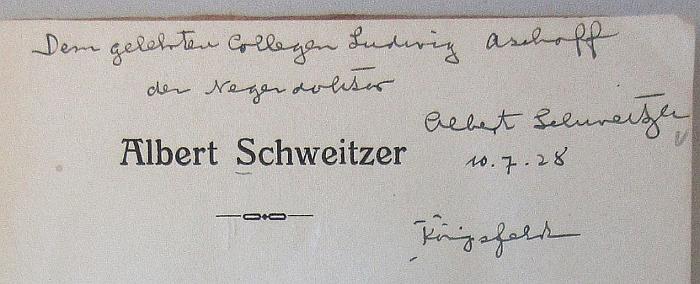 Dem gelehrten Collegen Ludwig Aschoff
der Negerdoktor
Albert Schweitzer
Albert Schweitzer
10.7.28
Königsfeld